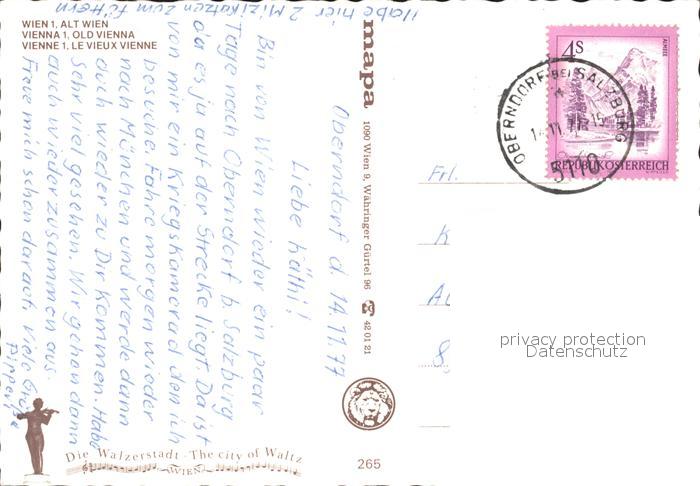 WIEN 1, ALT WIEN
VIENNA 1, OLD VIENNA
VIENNE 1, LE VIEUX VIENNE
Oberndorf d. 14.11.77
Liebe Käthi!
Bin von Wien wieder ein paar
Tage nach Oberndorf b. Salzburg
da es ja auf der Strecke liegt. Da ist
von mir ein Kriegskamerad den ich
besuche. Fahre morgen wieder
nach München und werde dann
auch wieder zu Dir kommen. Habe
sehr viel gesehen. Wir gehen dann
auch wieder zusammen aus.
Freue mich schon darauf. Viele Grüße
Habe hier 2 Mizikatzen zum füttern
mapa
1090 Wien 9, Währinger Gürtel 96
42 01 21
Frl.
K
8
4S
ALMSEE
REPUBLIK ÖSTERREICH
OBERNDORF BEI SALZBURG
5110
privacy protection
Datenschutz
Die Walzerstadt - The city of Waltz
WIEN
265